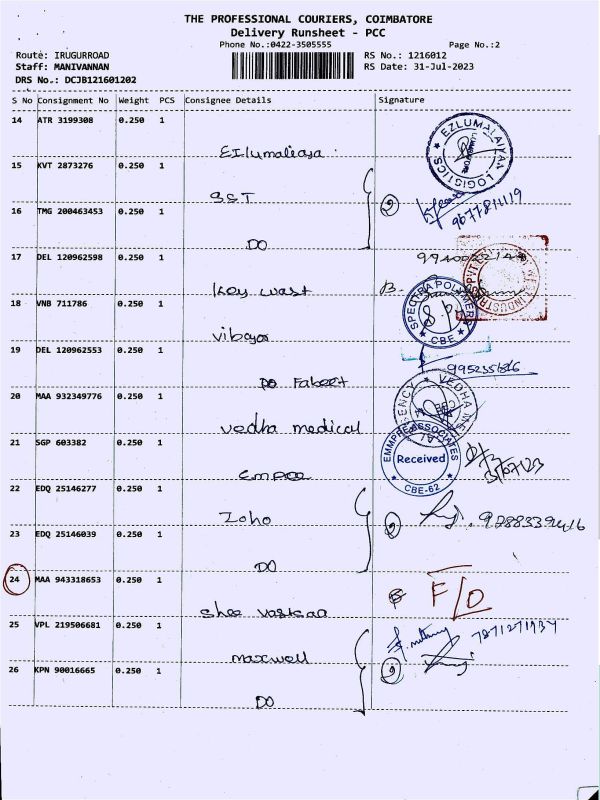 THE PROFESSIONAL COURIERS, COIMBATORE
Delivery Runsheet - PCC
Phone No.:0422-3505555 Page No.:2
Route: IRUGURROAD RS No.: 1216012
Staff: MANIVANNAN RS Date: 31-Jul-2023
DRS No.: DCJB121601202
S No Consignment No Weight PCS Consignee Details Signature
14 ATR 3199308 0.250 1
EZLUMALAIYAN LOGISTICS
15 KVT 2873276 0.250 1
SST
16 TMG 200463453 0.250 1
DO
17 DEL 120962598 0.250 1
Key wast
18 VNB 711786 0.250 1
SPECTRA POLYMERS
S P
CBE
19 DEL 120962553 0.250 1
DO Fabeet
20 MAA 932349776 0.250 1
Vedha medical
21 SGP 603382 0.250 1
EMMPRE ASSOCIATES
Received
CBE-62
22 EDQ 25146277 0.250 1
Zoho
23 EDQ 25146039 0.250 1
DO
24 MAA 943318653 0.250 1
F/D
25 VPL 219506681 0.250 1
maxwell 7871271937
26 KPN 90016665 0.250 1
DO